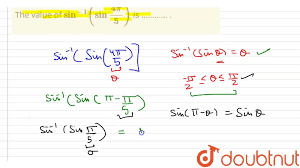 The value of sin⁻¹(sin 4π/5) is ..............
sin⁻¹(Sin(4π/5)]
θ
sin⁻¹(Sinθ) = θ ✓
-π/2 ≤ θ ≤ π/2 ✓
Sin⁻¹(Sin(π-π/5))
Sin(π-θ) = Sinθ
Sin⁻¹(Sin π/5) =
θ